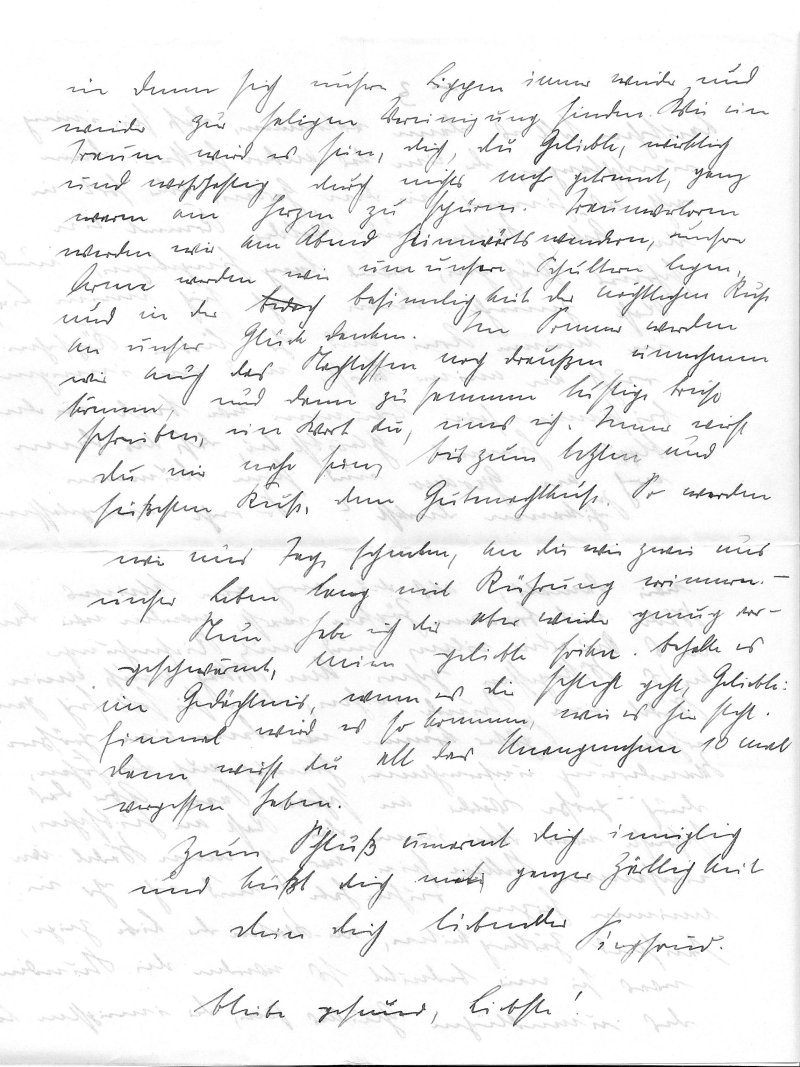 in denen sich unsere Lippen immer wieder und
wieder zur seligen Vereinigung finden. Wie ein
Traum wird es sein, dich, du Geliebte, wirklich
und wahrhaftig, durch nichts mehr getrennt, ganz
warm am Herzen zu spüren. Traumverloren
werden wir am Abend heimwärts wandern, unsere
Arme werden wir um unsere Schultern legen,
und in der Besinnlichkeit der nächtlichen Ruhe
an unser Glück denken. Im Sommer werden
wir auch das Nachtessen noch draußen einnehmen
können, und dann zusammen lustige Briefe
schreiben, ein Wort du, eines ich. Immer wirst
du mir nahe sein, bis zum letzten und
süßesten Kuß, dem Gutenachtkuß. So werden
wir uns Tage schenken, an die wir zwei uns
unser Leben lang mit Rührung erinnern. –
Nun habe ich dir aber wieder genug vor-
geschwärmt, meine geliebte. Behalte es
im Gedächtnis, wenn es dir schlecht geht, Geliebte:
Einmal wird es so kommen, wie es hier steht.
Dann wirst du all das Unangenehme 10 mal
vergessen haben.
Zum Schluß umarmt dich inniglich
und küßt dich mit ganzer Zärtlichkeit
dein dich liebender
Bleibe gesund, Liebste!